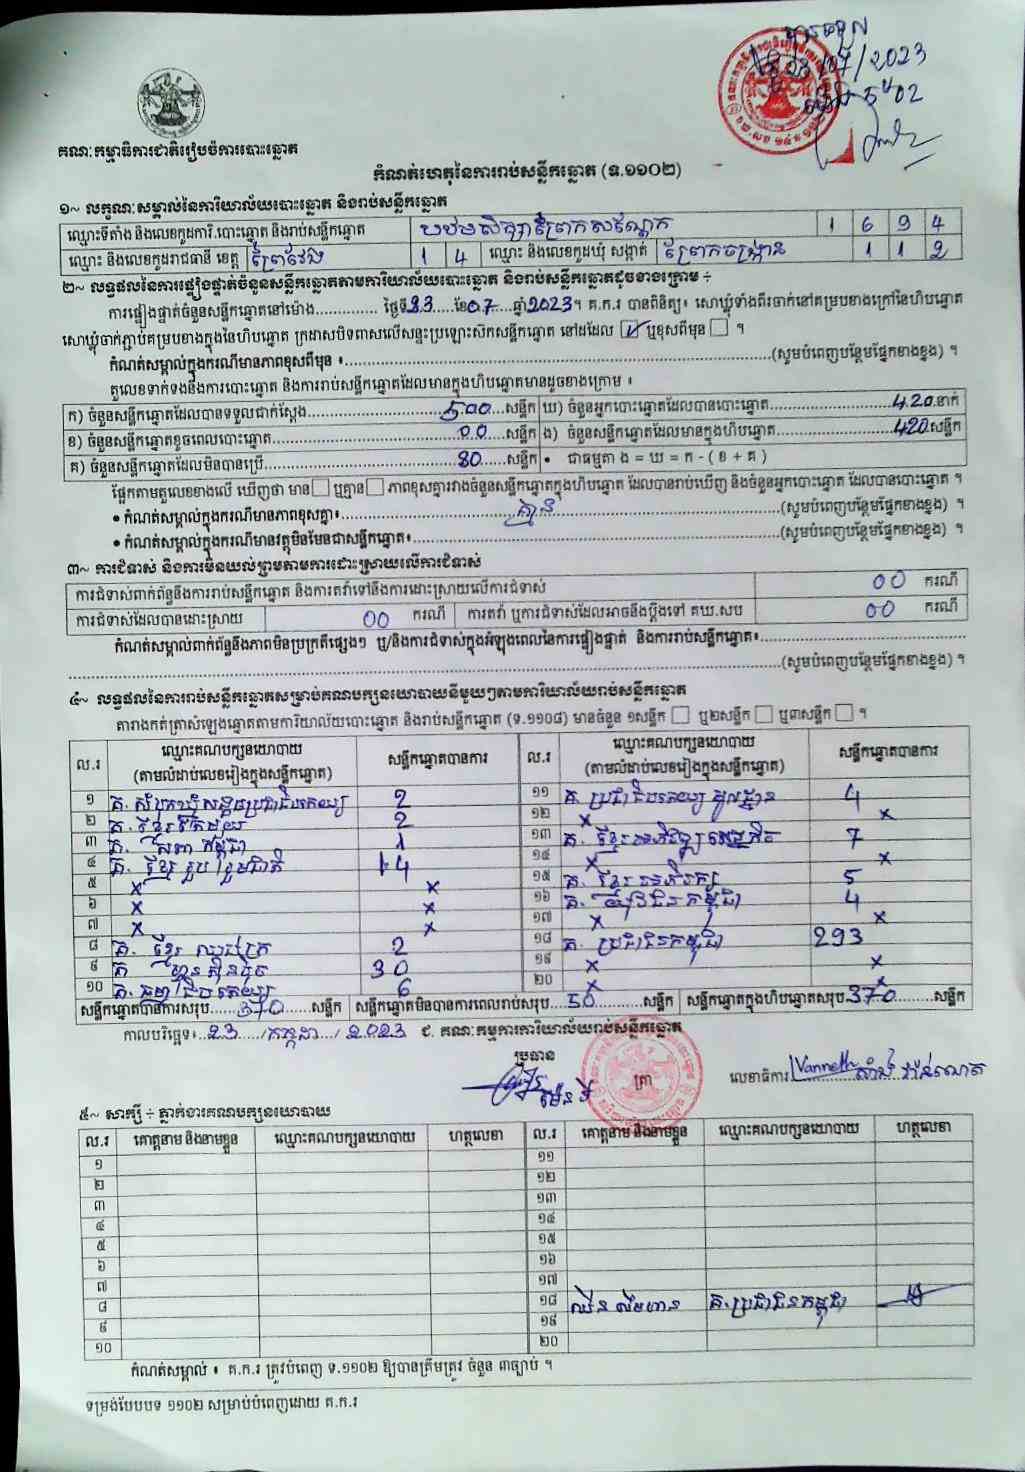 បានទទួល
ថ្ងៃ 23/07/2023
គណៈកម្មាធិការជាតិរៀបចំការបោះឆ្នោត
កំណត់ហេតុនៃការរាប់សន្លឹកឆ្នោត (ទ.១១០២)
១~ លក្ខណៈសម្គាល់នៃការិយាល័យបោះឆ្នោត និងរាប់សន្លឹកឆ្នោត
ឈ្មោះទីតាំង និងលេខកូដការិ.បោះឆ្នោត និងរាប់សន្លឹកឆ្នោត បឋមសិក្សាព្រែកសណ្តែក 1 6 9 4
ឈ្មោះ និងលេខកូដរាជធានី ខេត្ត ព្រៃវែង 1 4 ឈ្មោះ និងលេខកូដឃុំ សង្កាត់ ព្រែកចង្ក្រាន 1 1 2
២~ លទ្ធផលនៃការផ្ទៀងផ្ទាត់ចំនួនសន្លឹកឆ្នោតតាមការិយាល័យបោះឆ្នោត និងរាប់សន្លឹកឆ្នោតដូចខាងក្រោម ÷
ការផ្ទៀងផ្ទាត់ចំនួនសន្លឹកឆ្នោតនៅម៉ោង.............. ថ្ងៃទី23.....ខែ07......ឆ្នាំ2023។ គ.ក.រ បានពិនិត្យ៖ សោឃ្លុំទាំងពីរចាក់នៅគម្របខាងក្រៅនៃហិបឆ្នោត
សោឃ្លុំចាក់ភ្ជាប់គម្របខាងក្នុងនៃហិបឆ្នោត ក្រដាសបិទពាសលើសន្ទះប្រឡោះស៊កសន្លឹកឆ្នោត នៅដដែល ☑ ឬខុសពីមុន ☐ ។
កំណត់សម្គាល់ក្នុងករណីមានភាពខុសពីមុន ៖...............(សូមបំពេញបន្ថែមផ្នែកខាងខ្នង) ។
តួលេខទាក់ទងនឹងការបោះឆ្នោត និងការរាប់សន្លឹកឆ្នោតដែលមានក្នុងហិបឆ្នោតមានដូចខាងក្រោម ៖
ក) ចំនួនសន្លឹកឆ្នោតដែលបានទទួលជាក់ស្តែង......500...សន្លឹក ឃ) ចំនួនអ្នកបោះឆ្នោតដែលបានបោះឆ្នោត......420.នាក់
ខ) ចំនួនសន្លឹកឆ្នោតខូចពេលបោះឆ្នោត......00......សន្លឹក ង) ចំនួនសន្លឹកឆ្នោតដែលមានក្នុងហិបឆ្នោត......420.សន្លឹក
គ) ចំនួនសន្លឹកឆ្នោតដែលមិនបានប្រើ......80......សន្លឹក • ជាធម្មតា ង = ឃ = ក - ( ខ + គ )
ផ្អែកតាមតួលេខខាងលើ ឃើញថា មាន☐ ឬគ្មាន☐ ភាពខុសគ្នារវាងចំនួនសន្លឹកឆ្នោតក្នុងហិបឆ្នោត ដែលបានរាប់ឃើញ និងចំនួនអ្នកបោះឆ្នោត ដែលបានបោះឆ្នោត ។
• កំណត់សម្គាល់ក្នុងករណីមានភាពខុសគ្នា៖......គ្មាន......(សូមបំពេញបន្ថែមផ្នែកខាងខ្នង) ។
• កំណត់សម្គាល់ក្នុងករណីមានវត្ថុមិនមែនជាសន្លឹកឆ្នោត៖......(សូមបំពេញបន្ថែមផ្នែកខាងខ្នង) ។
៣~ ការជំទាស់ និងការមិនយល់ព្រមតាមការដោះស្រាយលើការជំទាស់
ការជំទាស់ពាក់ព័ន្ធនឹងការរាប់សន្លឹកឆ្នោត និងការតវ៉ាទៅនឹងការដោះស្រាយលើការជំទាស់ 00 ករណី
ការជំទាស់ដែលបានដោះស្រាយ 00 ករណី ការតវ៉ា ឬការជំទាស់ដែលអាចនឹងប្តឹងទៅ គឃ.សប 00 ករណី
កំណត់សម្គាល់ពាក់ព័ន្ធនឹងភាពមិនប្រក្រតីផ្សេងៗ ឬ/និងការជំទាស់ក្នុងអំឡុងពេលនៃការផ្ទៀងផ្ទាត់ និងការរាប់សន្លឹកឆ្នោត៖......
......(សូមបំពេញបន្ថែមផ្នែកខាងខ្នង) ។
៤~ លទ្ធផលនៃការរាប់សន្លឹកឆ្នោតសម្រាប់គណបក្សនយោបាយនីមួយៗតាមការិយាល័យរាប់សន្លឹកឆ្នោត
តារាងកត់ត្រាសំឡេងឆ្នោតតាមការិយាល័យបោះឆ្នោត និងរាប់សន្លឹកឆ្នោត (ទ.១១០៨) មានចំនួន ១សន្លឹក ☐ ឬ២សន្លឹក ☐ ឬ៣សន្លឹក ☐ ។
ល.រ ឈ្មោះគណបក្សនយោបាយ (តាមលំដាប់លេខរៀងក្នុងសន្លឹកឆ្នោត) សន្លឹកឆ្នោតបានការ ល.រ ឈ្មោះគណបក្សនយោបាយ (តាមលំដាប់លេខរៀងក្នុងសន្លឹកឆ្នោត) សន្លឹកឆ្នោតបានការ
១ គ. សំបុកឃ្មុំសង្គមប្រជាធិបតេយ្យ 2 ១១ គ. ប្រជាធិបតេយ្យមូលដ្ឋាន 4
២ គ. ខ្មែរតែមួយ 2 ១២ × ×
៣ គ. 1 ១៣ គ. ខ្មែរអភិវឌ្ឍសេដ្ឋកិច្ច 7
៤ គ. ខ្មែររួបរួមជាតិ 14 ១៤ × ×
៥ × × ១៥ គ. ខ្មែរអភិរក្ស 5
៦ × × ១៦ គ. យុវជនកម្ពុជា 4
៧ × × ១៧ × ×
៨ គ. ខ្មែរឈប់ក្រ 2 ១៨ គ. ប្រជាជនកម្ពុជា 293
៩ គ ហ្វ៊ុនស៊ិនប៉ិច 30 ១៩ × ×
១០ គ. ធម្មាធិបតេយ្យ 6 ២០ × ×
សន្លឹកឆ្នោតបានការសរុប......370......សន្លឹក សន្លឹកឆ្នោតមិនបានការពេលរាប់សរុប...50......សន្លឹក សន្លឹកឆ្នោតក្នុងហិបឆ្នោតសរុប370......សន្លឹក
កាលបរិច្ឆេទ៖..23...../កក្កដា.../ 2023 ជ. គណៈកម្មការការិយាល័យរាប់សន្លឹកឆ្នោត
ប្រធាន ត្រា លេខាធិការ Vanneth
៥~ សាក្សី ÷ ភ្នាក់ងារគណបក្សនយោបាយ
ល.រ គោត្តនាម និងនាមខ្លួន ឈ្មោះគណបក្សនយោបាយ ហត្ថលេខា ល.រ គោត្តនាម និងនាមខ្លួន ឈ្មោះគណបក្សនយោបាយ ហត្ថលេខា
១ ១១
២ ១២
៣ ១៣
៤ ១៤
៥ ១៥
៦ ១៦
៧ ១៧
៨ ១៨ គ.ប្រជាជនកម្ពុជា
៩ ១៩
១០ ២០
កំណត់សម្គាល់ ៖ គ.ក.រ ត្រូវបំពេញ ទ.១១០២ ឱ្យបានត្រឹមត្រូវ ចំនួន ៣ច្បាប់ ។
ទម្រង់បែបបទ ១១០២ សម្រាប់បំពេញដោយ គ.ក.រ